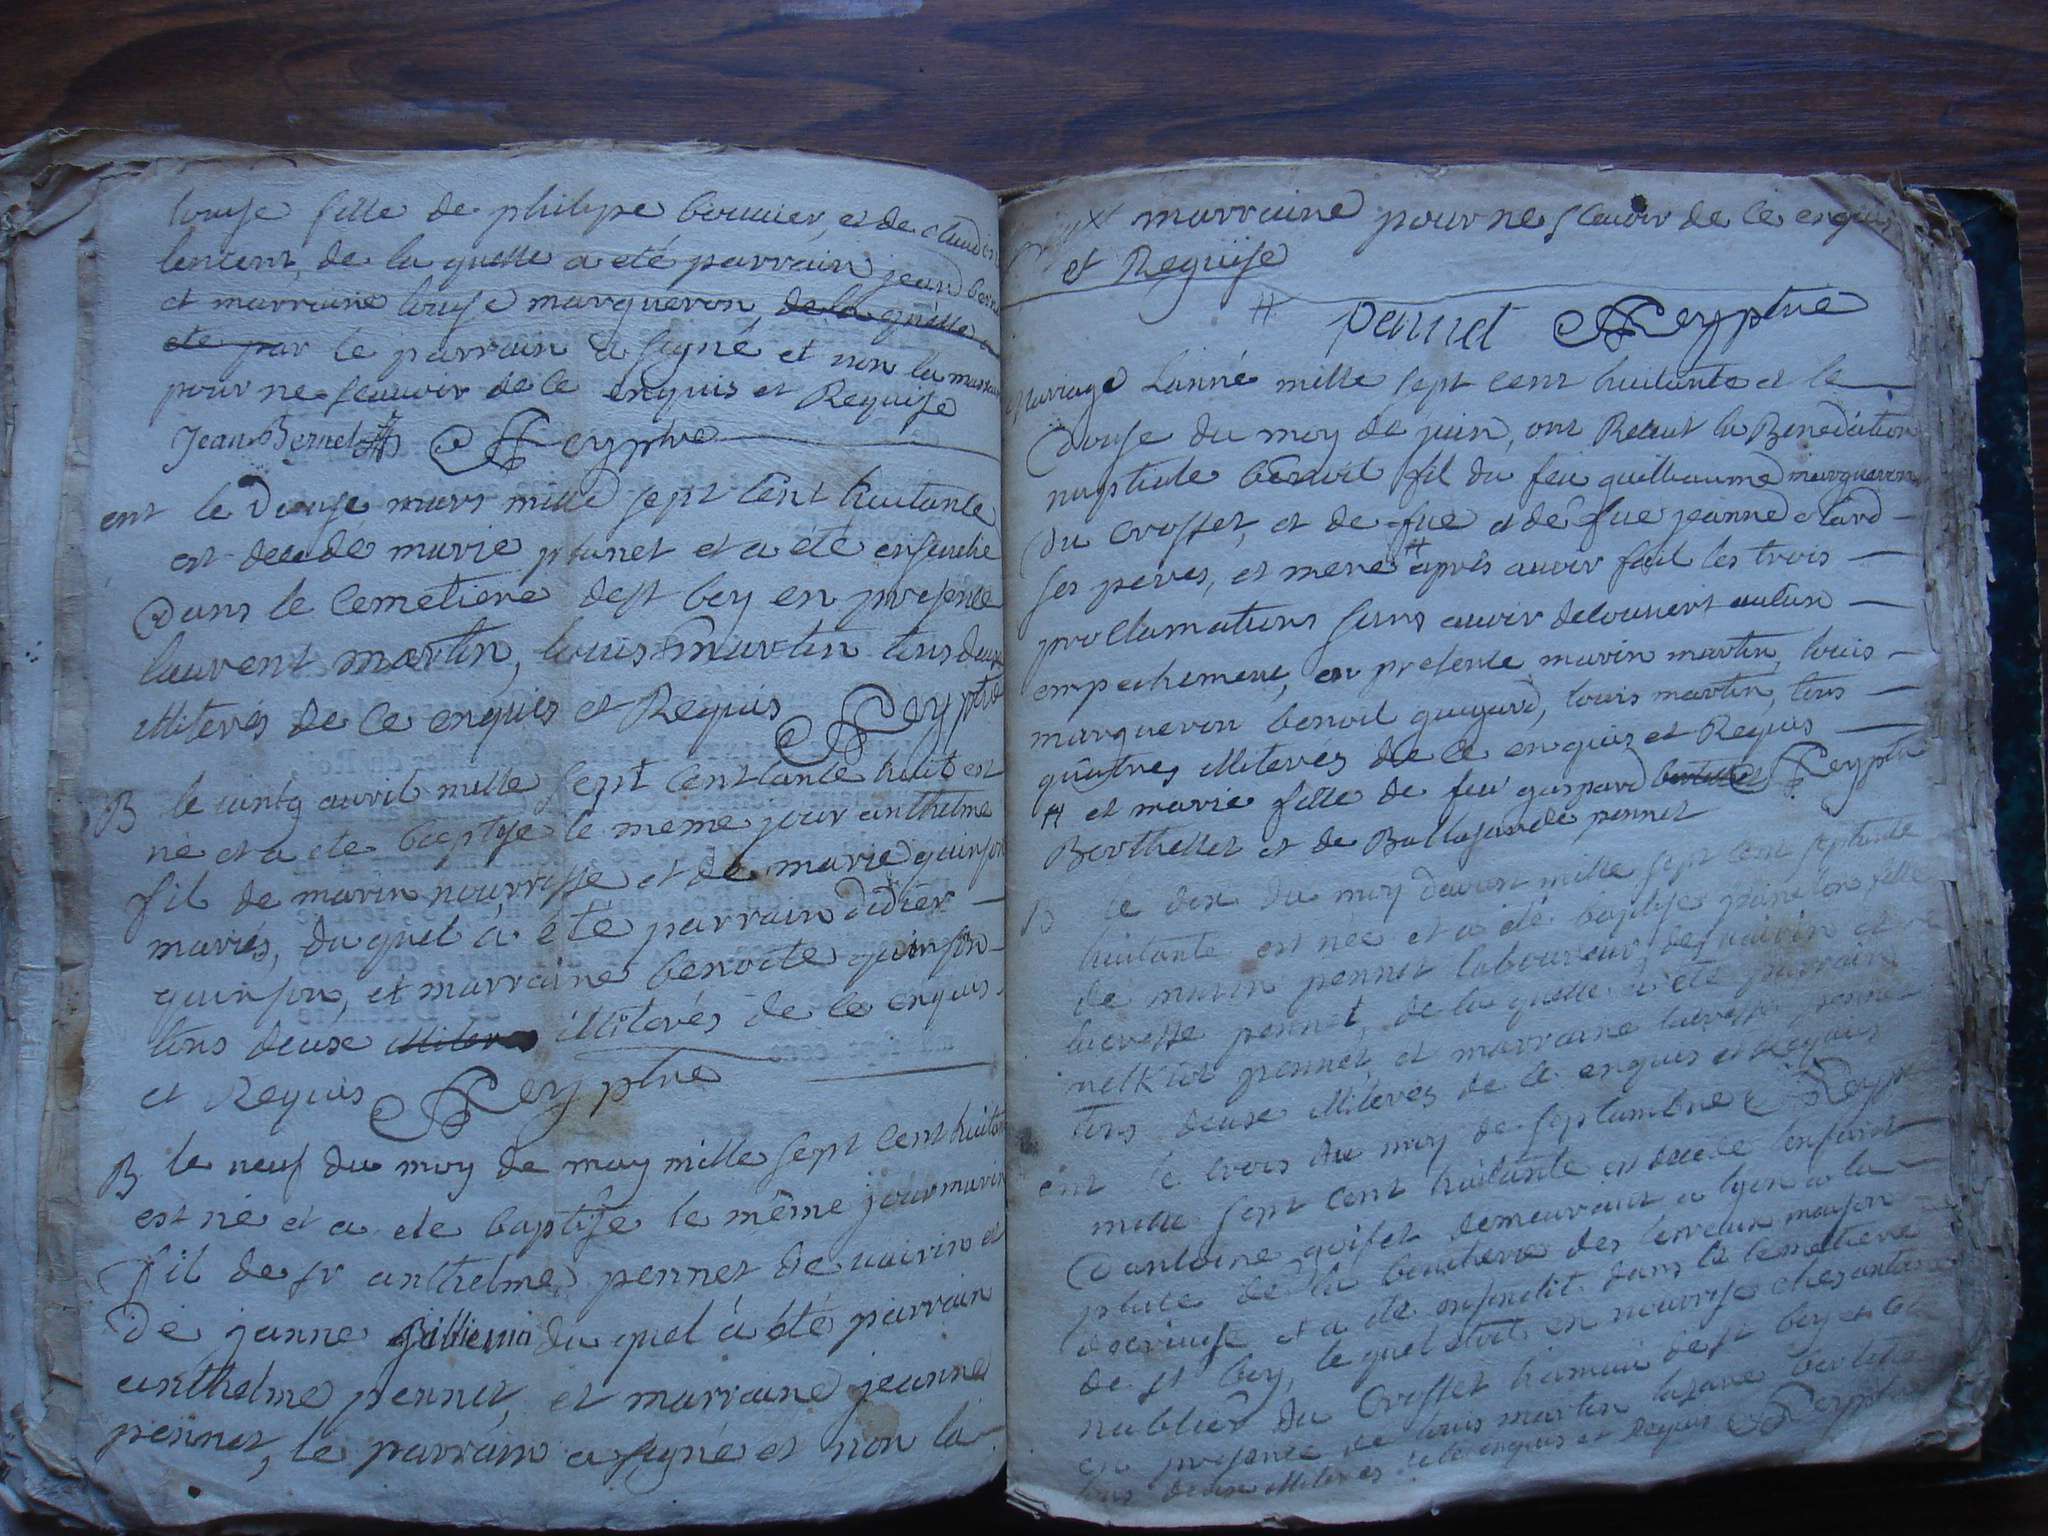 louyse fille de philipe bouuier, et de claudin
lencent, de la quelle a eté parrain jean bern
et marraine louyse marqueron, de la quelle a
ete par le parrain a signé et non la marraine
pour ne scauoir de ce enquis et Requise
Jean Bernet Rey ptre
ent le Douse mars mille sept cent huitante
est decedé marie planet et a eté ensevelie
Dans le cemetiere de st bey en presence
laurent martin, louis martin tous deux
illiterés de ce enquis et Requis Rey ptre
B le cintq auril mille sept cent tante huit est
né et a ete baptise le meme jour anthelme
fil de marin nourrisse et de marie quinson
mariés, du quel a été parrain didier
quinson, et marraine benoite quinson
tous deuse illiteres illiterés de ce enquis
et Requis Rey ptre
B le neuf du moy de may mille sept cent huitan
est né et a ete baptise le même jour marin
fil de sr anthelme pennet de uuirin et
De janne du quel á eté parrain
anthelme pennet, et marraine jeanne
pennet, le parrain a signé et non la
marraine pour ne scauoir de ce enquis
et Requise
pennet Rey ptre
Mariage Lanné mille sept cent huitante et le
Douse du moy de juin, ont Receut la Benediction
nuptiale benoit fil du feu guilliaume marqueron
Du Crosset, et de fue et de fue jeanne clard
ses peres, et mere # aprês auoir fail les trois
proclamations sans auoir decouuert aucun
empechement, en presence marin martin, louis
marqueron benoit guigard, louis martin, tous
quatres illiteres de ce enquis et Requis
# et marie fille de feu gaspard berthelet Rey ptre
Berthellet et de Baltasarde pennet
B le dix du moy daoust mille sept cent septante
huitante est née et a eté baptise fille
de marin pennet laboureur de uuirin et de
lucresse pennet, de la quelle a eté parrain
melkiot pennet, et marraine lucresse pennet
tous deuse illiterés de ce enquis et Requis
ent le trois du moy de septambre Rey ptre
mille sept cent huitante est decede lenfant
D antoine goiset demeurant a lyon a la
place de la boucherie des terreaux maison
et a ete enseuelit dans le cemetiere
de st bey, le quel etoit en nourrise ches antoi
nublier du Crosset hamau de st bey et ce
en presence de louis martin lasare berthele
tous deux illiteres de ce enquis et Requis Rey ptre